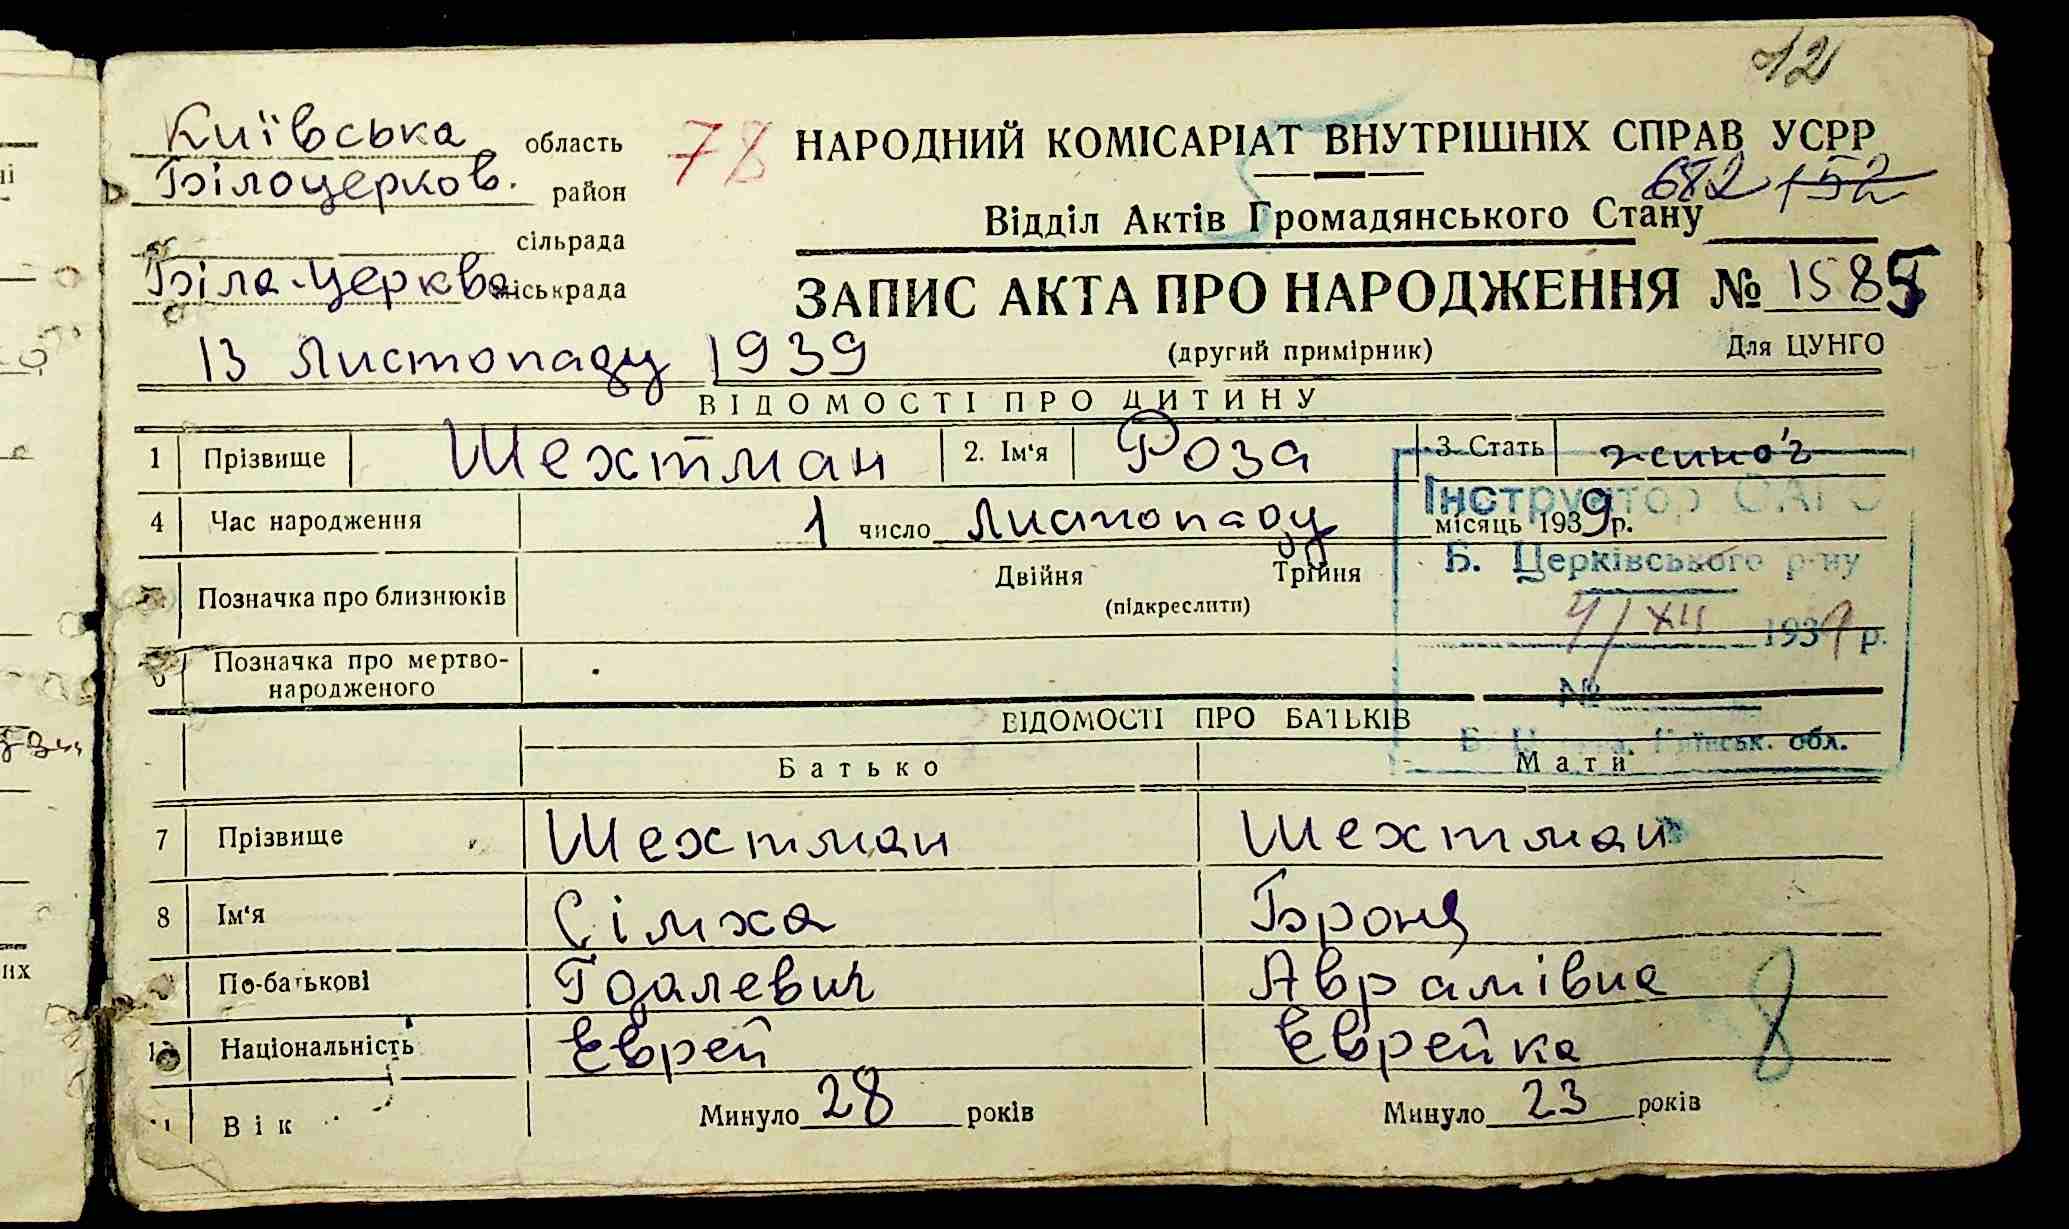 12
Київська область
78
НАРОДНИЙ КОМІСАРІАТ ВНУТРІШНІХ СПРАВ УСРР
Білоцерков. район
682 152
Відділ Актів Громадянського Стану
сільрада
Біла-Церква міськрада
ЗАПИС АКТА ПРО НАРОДЖЕННЯ № 1585
13 Листопаду 1939
(другий примірник) Для ЦУНГО
ВІДОМОСТІ ПРО ДИТИНУ
1 Прізвище Шехтман 2. Ім'я Роза 3. Стать жиноч
Інструктор
4 Час народження 1 число Листопаду місяць 1939 р.
Б. Церківського р-ну
Позначка про близнюків Двійня Трійня
(підкреслити)
4/XII 1939 р.
Позначка про мертво-
народженого
№
ВІДОМОСТІ ПРО БАТЬКІВ
Київськ. обл.
Батько Мати
7 Прізвище Шехтман Шехтман
8 Ім'я Сімха Броня
По-батькові Гдалевич Аврамівна
8
Національність Еврей Еврейка
11 Вік Минуло 28 років Минуло 23 років